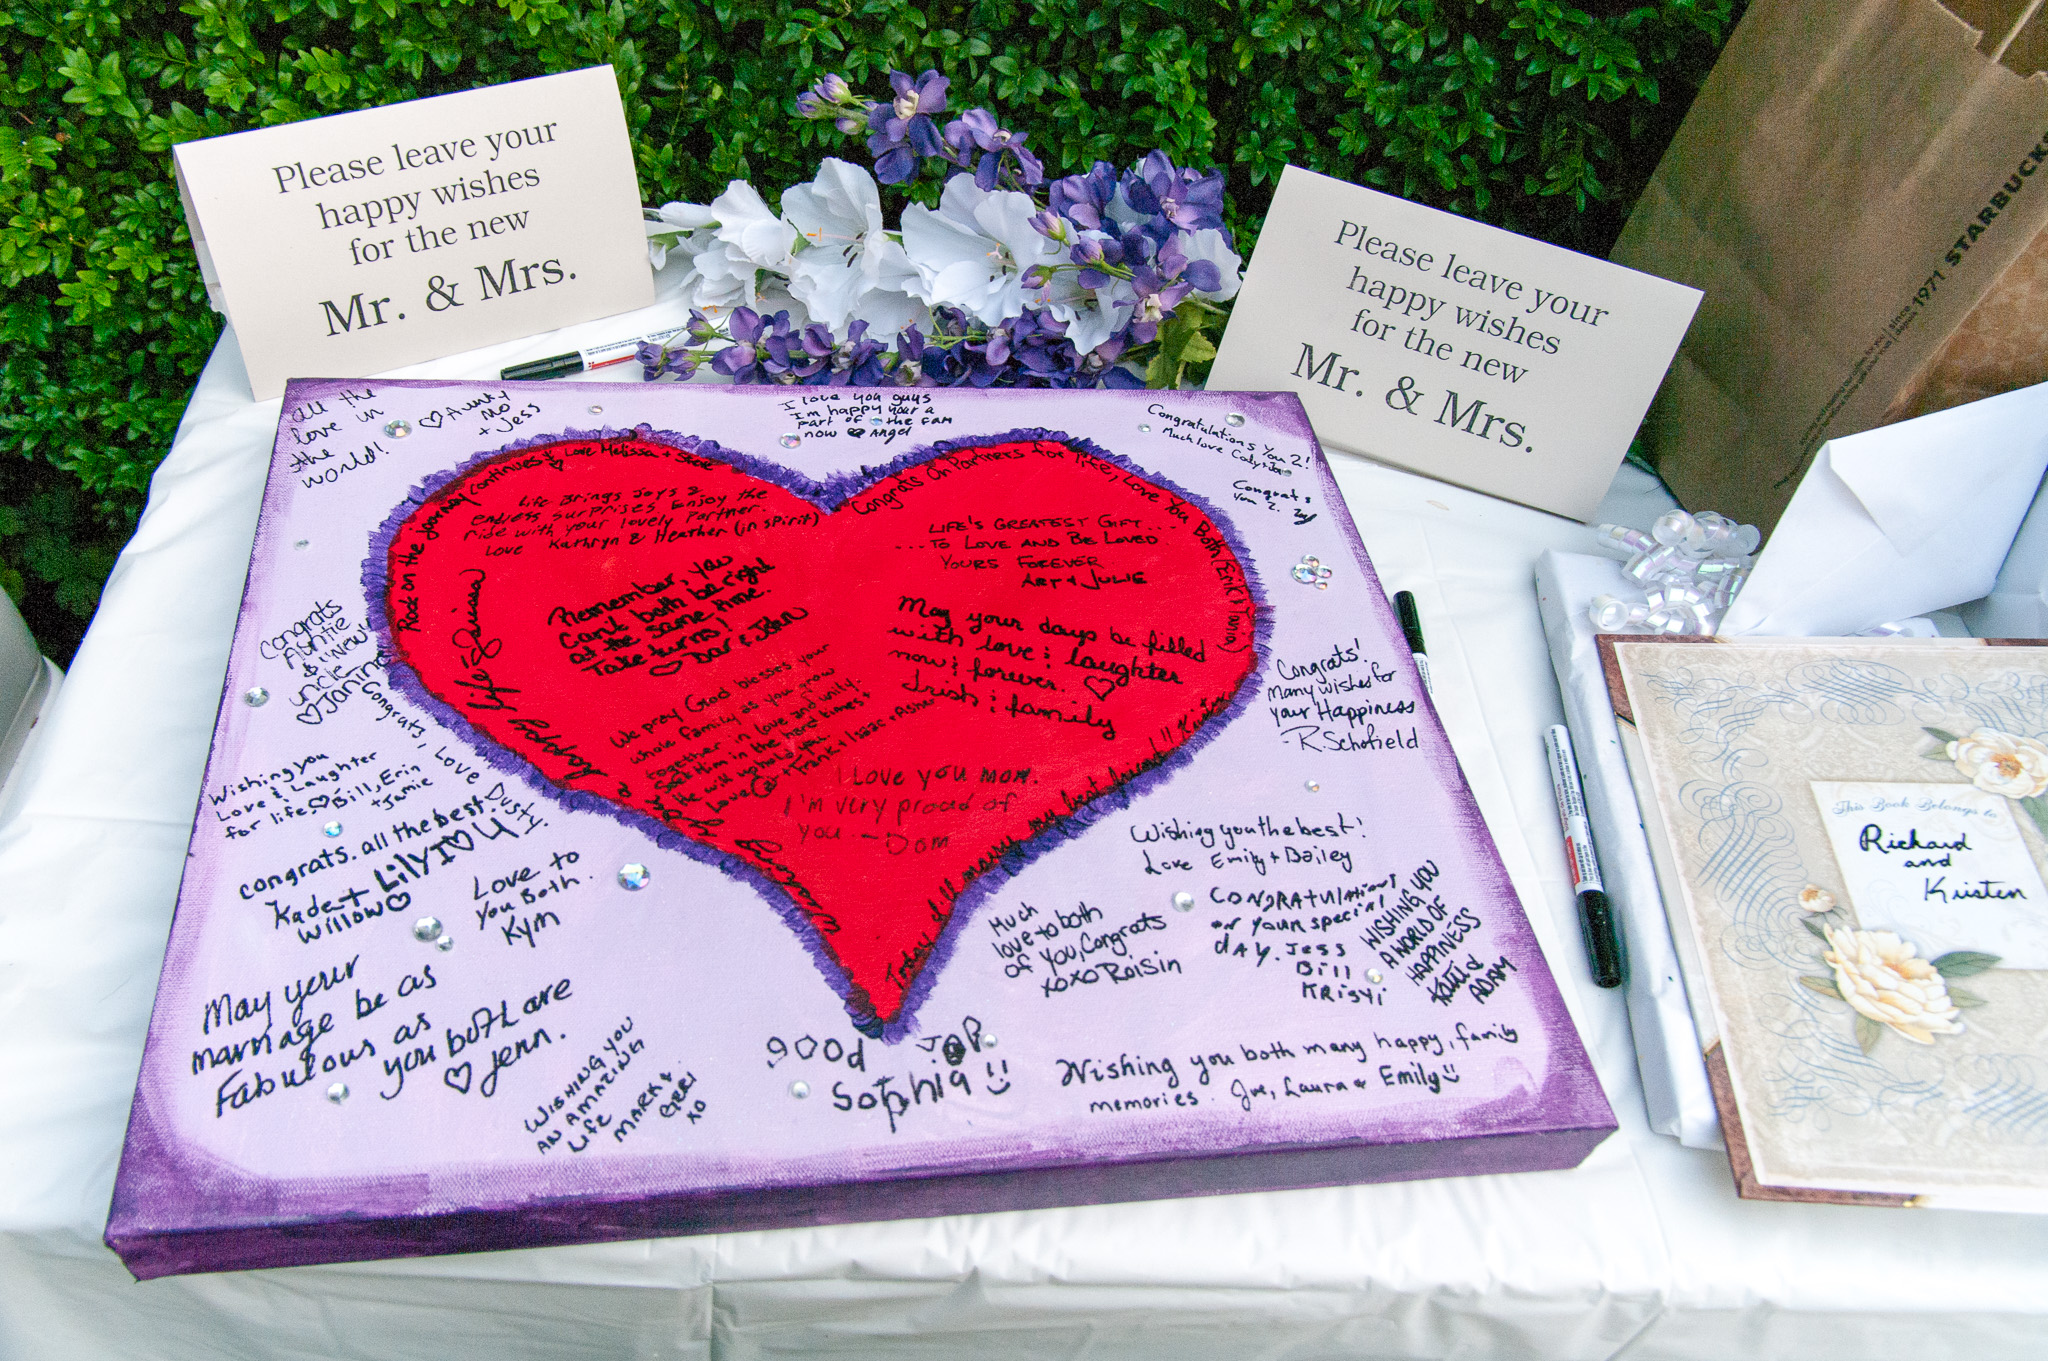 Please leave your
happy wishes
for the new
Mr. & Mrs.
Please leave your
happy wishes
for the new
Mr. & Mrs.
since 1971 STARBUCKS
all the
love in
the
world!
♡ Aunty
Mo
+ Jess
I love you guys
I'm happy your a
part of the fam
now ♥ Angel
Congratulations You 2!
Much love Cody +
Congrats
You 2.
Rock on the journey continues & Love Melissa + Steve
Life Brings Joys &
endless surprises. Enjoy the
ride with your lovely Partner.
Love Kathryn & Heather (in spirit)
Congrats On Partners for life, Love You Both (Erik + Tania)
LIFE'S GREATEST GIFT....
...TO LOVE AND BE LOVED
YOURS FOREVER
ART + JULIE
Remember, you
can't both be right
at the same time.
Take turns!
♡ Dar & John
May your days be filled
with love & laughter
now & forever. ♡
Irish & family
We pray God blesses your
whole family as you grow
together in love and unity.
Seek Him in the hard times &
He will uphold you.
Love + Frank + Isaac + Asher
I Love you mom.
I'm very proud of
you. - Dom
Wishing you a happy life Larissa
Today I'll marry my best friend!! Kristen
Congrats
Auntie
&
uncle
♡ Janina
Congrats, Love Dusty.
Wishing you
Love & Laughter
for life ♡ Bill, Erin
+ Jamie
congrats. all the best.
Kade +
Willow ♡
Lily I ♡ U
Love to
You Both.
Kym
May your
marriage be as
Fabulous as
you both are
♡ Jenn.
WISHING YOU
AN AMAZING
LIFE
MARK &
GERI
XO
good JOB
Sophia
Congrats!
Many wishes for
your Happiness
- R. Schofield
Wishing you the best!
Love Emily + Bailey
Much
love to both
of you, Congrats
xoxo Roisin
CONGRATULATIONS
on your special
dAY. Jess
Bill
KRisyi
WISHING YOU
A WORLD OF
HAPPINESS
ADAM
Wishing you both many happy, family
memories. Joe, Laura & Emily
This Book Belongs to
Richard
and
Kristen